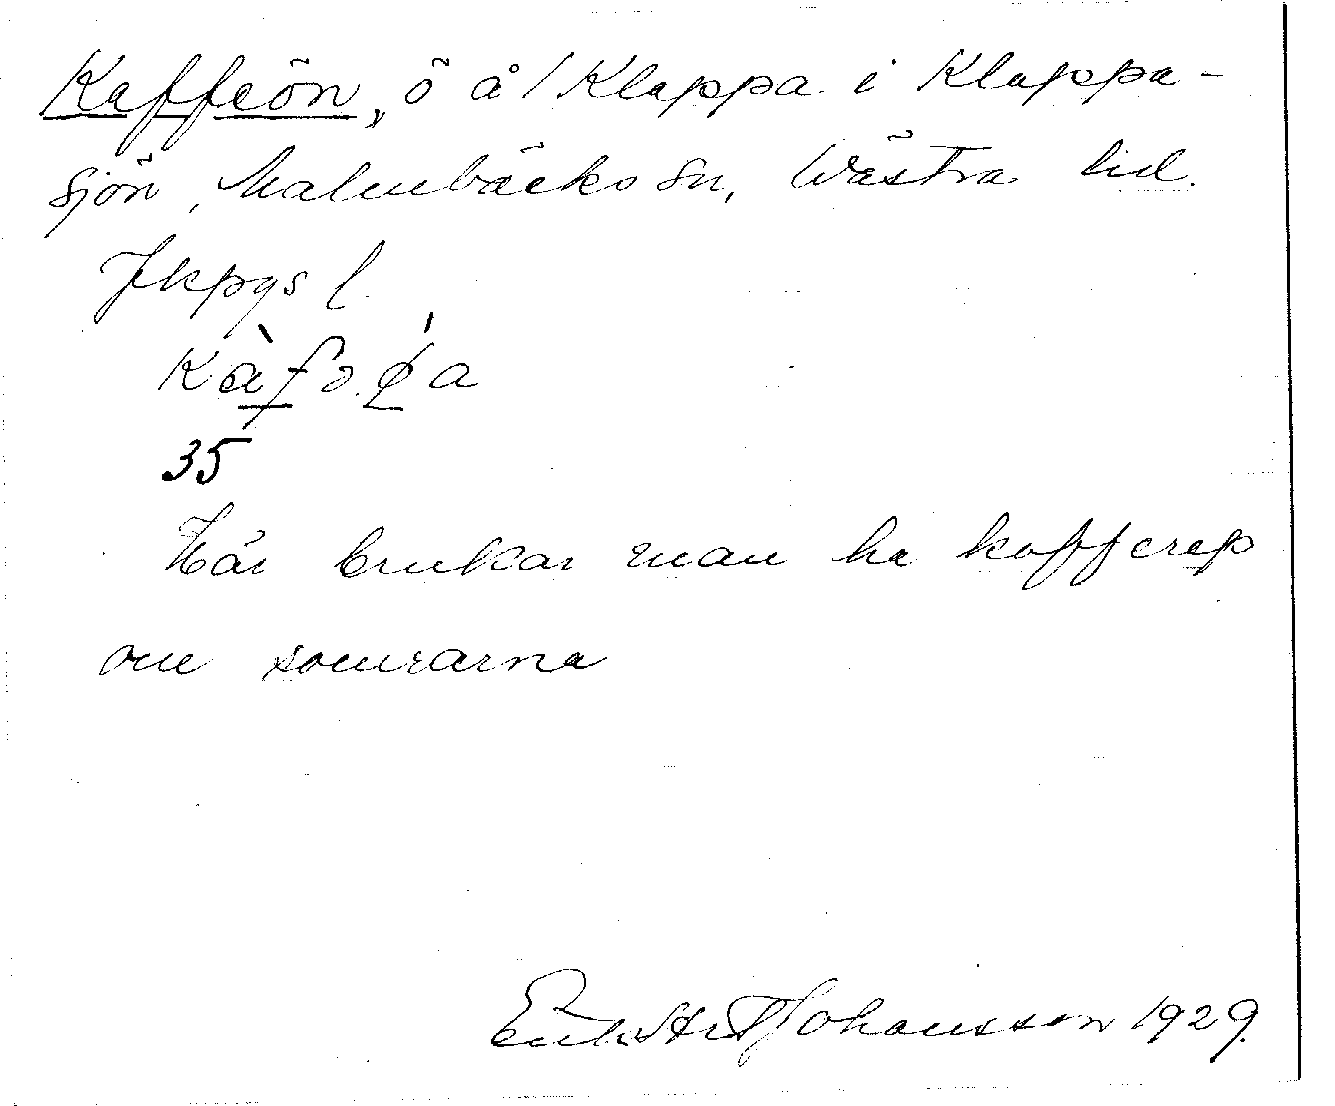 Kaffeön, ö å/ Klappa i Klappa-
sjön, Malmbäcks sn, Västra hd.
Jkpgs l.
35
Här brukar man ha kafferep
om somrarna
Johansson 1929.